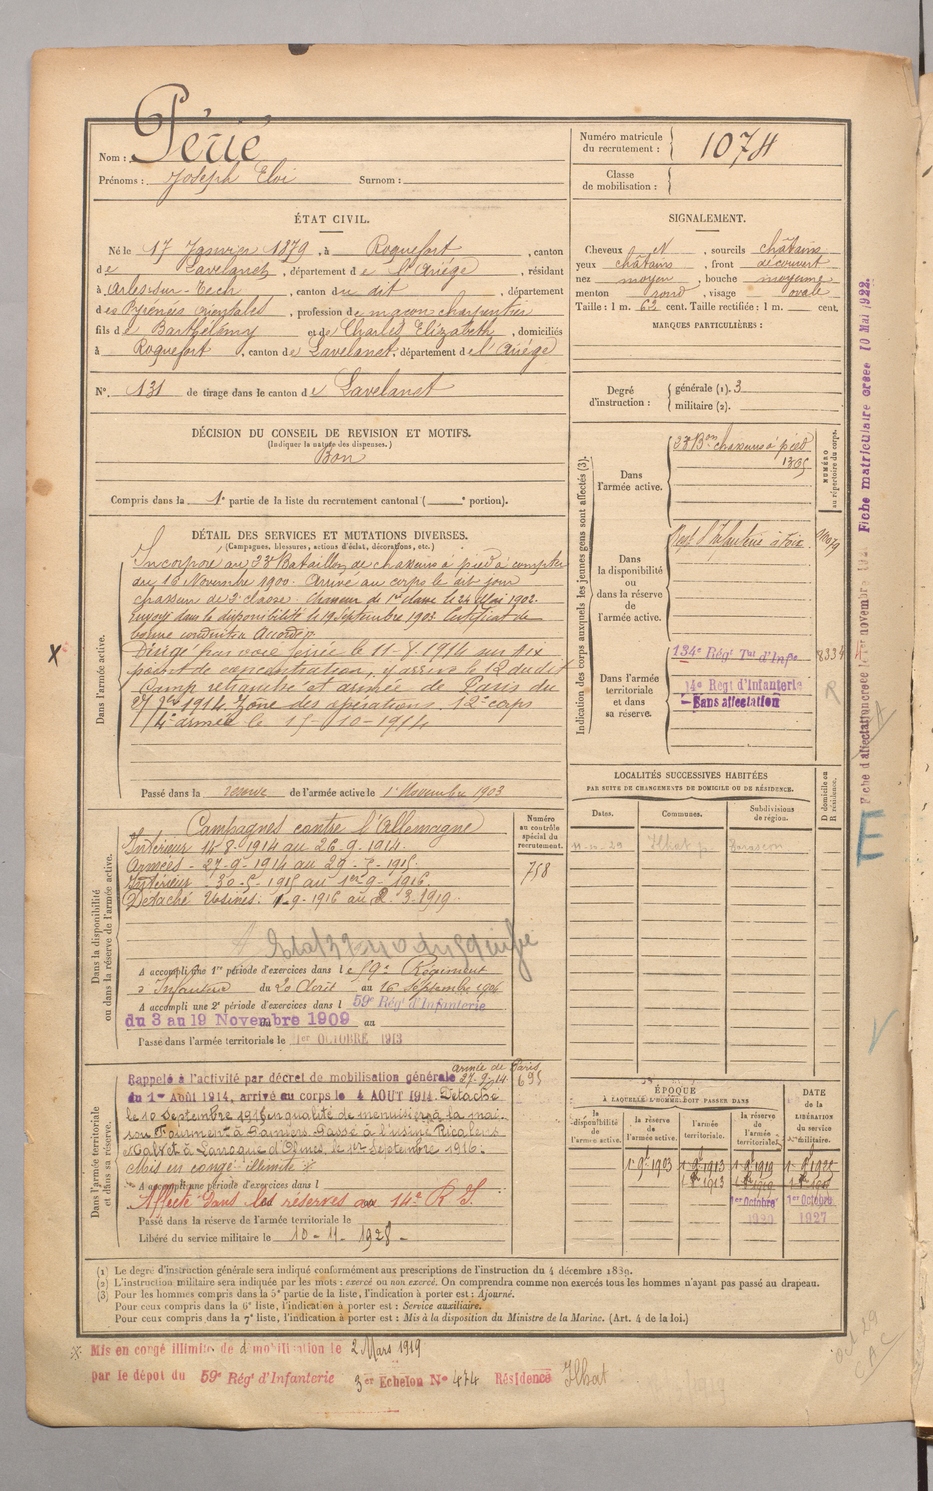 Nom : Périé
Prénoms : Joseph Eloi Surnom :
Numéro matricule du recrutement : 1074
Classe de mobilisation :
ÉTAT CIVIL.
Né le 17 Janvier 1879, à Roquefort, canton
de Lavelanet, département de l'Ariège, résidant
à Arles-sur-Tech, canton du dit, département
des Pyrénées orientales, profession de maçon charpentier
fils de Barthélemy et de Charles Elizabeth, domiciliés
à Roquefort, canton de Lavelanet, département de l'Ariège
N° 131 de tirage dans le canton de Lavelanet
SIGNALEMENT.
Cheveux N, sourcils châtains
yeux châtains, front découvert
nez moyen, bouche moyenne
menton rond, visage ovale
Taille : 1 m. 62 cent. Taille rectifiée : 1 m. cent.
MARQUES PARTICULIÈRES :
Degré d'instruction : générale (1). 3
militaire (2).
DÉCISION DU CONSEIL DE REVISION ET MOTIFS.
(Indiquer la nature des dispenses.)
Bon
Compris dans la 1e partie de la liste du recrutement cantonal ( e portion).
DÉTAIL DES SERVICES ET MUTATIONS DIVERSES.
(Campagnes, blessures, actions d'éclat, décorations, etc.)
Dans l'armée active.
Incorporé au 23e Bataillon de chasseurs à pied à compter
du 16 Novembre 1900. Arrivé au corps le dit jour
chasseur de 2e classe. Chasseur de 1re classe le 24 Mai 1902.
Envoyé dans la disponibilité le 19 Septembre 1903 Certificat de
bonne conduite Accordé
Dirigé par voie ferrée le 11-8-1914 sur six
point de concentration, y arrive le 12 du dit
Camp retranché et armée de Paris du
27 7bre 1914. Zone des opérations. 12e corps
4e armée le 15-10-1914
Passé dans la réserve de l'armée active le 1er Novembre 1903
Indication des corps auxquels les jeunes gens sont affectés (3).
NUMÉRO au répertoire du corps.
Dans l'armée active.
23e Bon chasseurs à pied
Dans la disponibilité ou dans la réserve de l'armée active.
Regt d'Infanterie à Foix
Dans l'armée territoriale et dans sa réserve.
134e Rég' Tal d'Infie
14e Regt d'Infanterie
Sans affectation
Fiche matriculaire créée 10 Mai 1922.
LOCALITÉS SUCCESSIVES HABITÉES
PAR SUITE DE CHANGEMENTS DE DOMICILE OU DE RÉSIDENCE.
Dates. Communes. Subdivisions de région. D domicile ou R résidence.
Ilhat Tarascon
Dans la disponibilité ou dans la réserve de l'armée active.
Numéro au contrôle spécial du recrutement.
758
Campagnes contre l'Allemagne
Intérieur 14-8-1914 au 26-9-1914.
Armées - 27-9-1914 au 29-5-1915.
Intérieur - 30-5-1915 au 1er 9-1916.
Détaché Usines. 1-9-1916 au 2-3-1919.
A accompli une 1re période d'exercices dans le 59e Régiment
d'Infanterie du 20 Août au 16 Septembre 1906
A accompli une 2e période d'exercices dans l 59e Rég' d'Infanterie
du 3 au 19 Novembre 1909 au
Passé dans l'armée territoriale le 1er OCTOBRE 1913
Dans l'armée territoriale et dans sa réserve.
armée de Paris
Rappelé à l'activité par décret de mobilisation générale 27-9-14
695
du 1er Août 1914, arrivé au corps le 4 AOUT 1914. Détaché
le 10 Septembre 1916 en qualité de menuisier à la mai-
son Fourment à Pamiers. Passé à l'usine Ricalens
Malvet à Laroque d'Olmes le 1er Septembre 1916.
Mis en congé illimité ※
A accompli une période d'exercices dans l
Affecté dans les réserves au 14e R I.
Passé dans la réserve de l'armée territoriale le
Libéré du service militaire le 10-11-1928-
ÉPOQUE À LAQUELLE L'HOMME DOIT PASSER DANS
la disponibilité de l'armée active. la réserve de l'armée active. l'armée territoriale. la réserve de l'armée territoriale.
DATE DE LA LIBÉRATION DU service militaire.
1er Octobre 1920
1er Octobre 1927
(1) Le degré d'instruction générale sera indiqué conformément aux prescriptions de l'instruction du 4 décembre 1839.
(2) L'instruction militaire sera indiquée par les mots : exercé ou non exercé. On comprendra comme non exercés tous les hommes n'ayant pas passé au drapeau.
(3) Pour les hommes compris dans la 5e partie de la liste, l'indication à porter est : Ajourné.
Pour ceux compris dans la 6e liste, l'indication à porter est : Service auxiliaire.
Pour ceux compris dans la 7e liste, l'indication à porter est : Mis à la disposition du Ministre de la Marine. (Art. 4 de la loi.)
※ Mis en congé illimité de démobilisation le 2 Mars 1919
par le dépôt du 59e Rég' d'Infanterie 3er Echelon N° 474 Résidence Ilhat